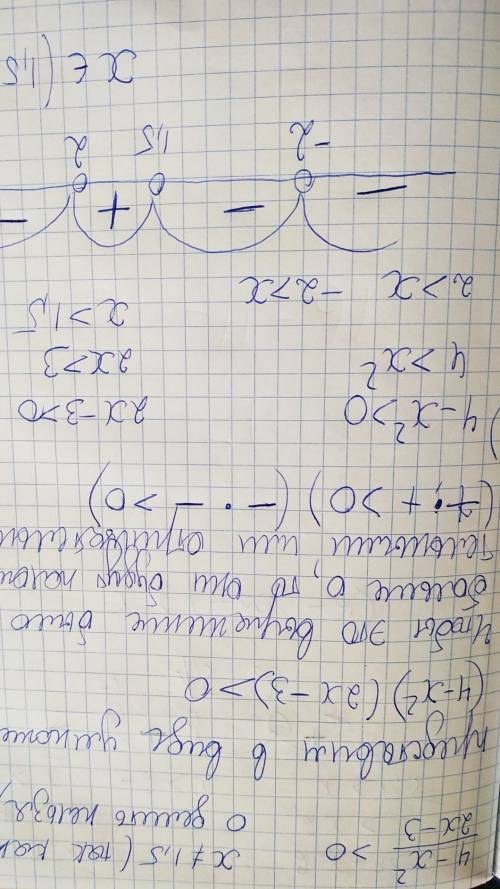 4-x²/2x-3 > 0    x ≠ 1,5 (так как
0 делить нельзя,
представим в виде умноже
(4-x²)(2x-3)>0
чтобы это выражение было
больше 0, то они будут полож
тельными или отрицательн
(+·+>0) (-·->0)
4-x²>0    2x-3>0
4>x²    2x>3
2>x  -2>x    x>1,5
-  -  +  -
-2  1,5  2
x ∈ (1,5